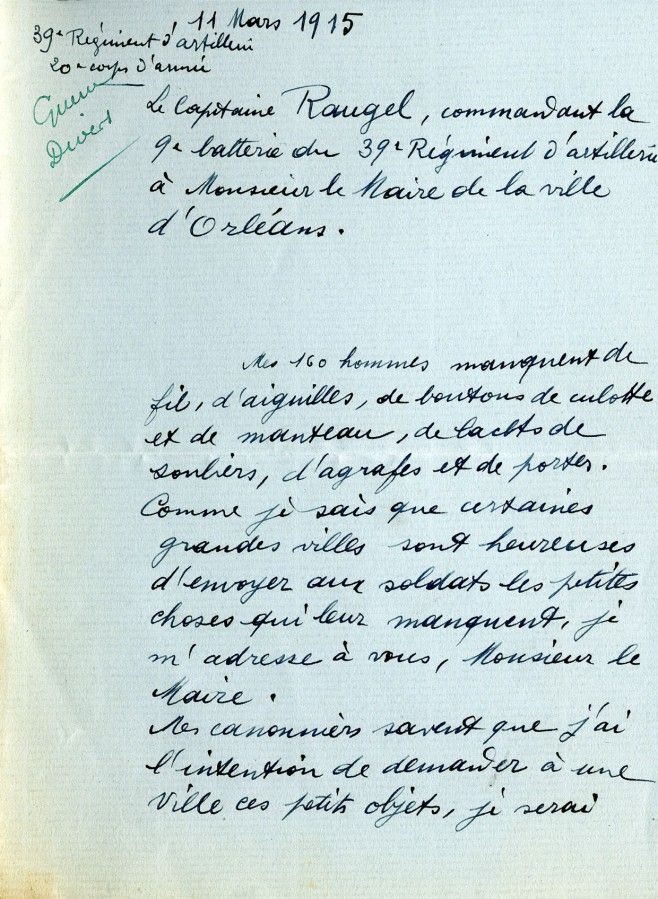 11 Mars 1915
39e Régiment d'artillerie
20e corps d'armée
Guerre
Divers
Le Capitaine Raugel, commandant la
9e batterie du 39e Régiment d'artillerie
à Monsieur le Maire de la ville
d'Orléans.
Mes 160 hommes manquent de
fil, d'aiguilles, de boutons de culotte
et de manteau, de lacets de
souliers, d'agrafes et de portes.
Comme je sais que certaines
grandes villes sont heureuses
d'envoyer aux soldats les petites
choses qui leur manquent, je
m'adresse à vous, Monsieur le
Maire.
Mes canonniers savent que j'ai
l'intention de demander à une
ville ces petits objets, je serai